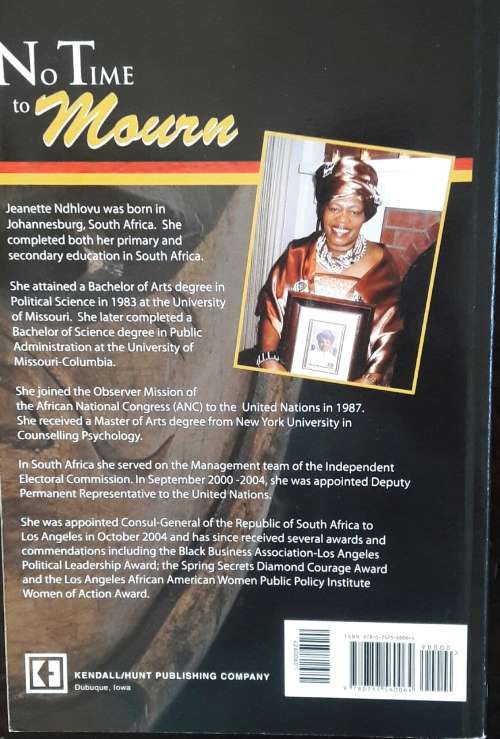 No Time
to Mourn
Jeanette Ndhlovu was born in
Johannesburg, South Africa. She
completed both her primary and
secondary education in South Africa.
She attained a Bachelor of Arts degree in
Political Science in 1983 at the University
of Missouri. She later completed a
Bachelor of Science degree in Public
Administration at the University of
Missouri-Columbia.
She joined the Observer Mission of
the African National Congress (ANC) to the United Nations in 1987.
She received a Master of Arts degree from New York University in
Counselling Psychology.
In South Africa she served on the Management team of the Independent
Electoral Commission. In September 2000 -2004, she was appointed Deputy
Permanent Representative to the United Nations.
She was appointed Consul-General of the Republic of South Africa to
Los Angeles in October 2004 and has since received several awards and
commendations including the Black Business Association-Los Angeles
Political Leadership Award; the Spring Secrets Diamond Courage Award
and the Los Angeles African American Women Public Policy Institute
Women of Action Award.
KENDALL/HUNT PUBLISHING COMPANY
Dubuque, Iowa
ISBN
90000